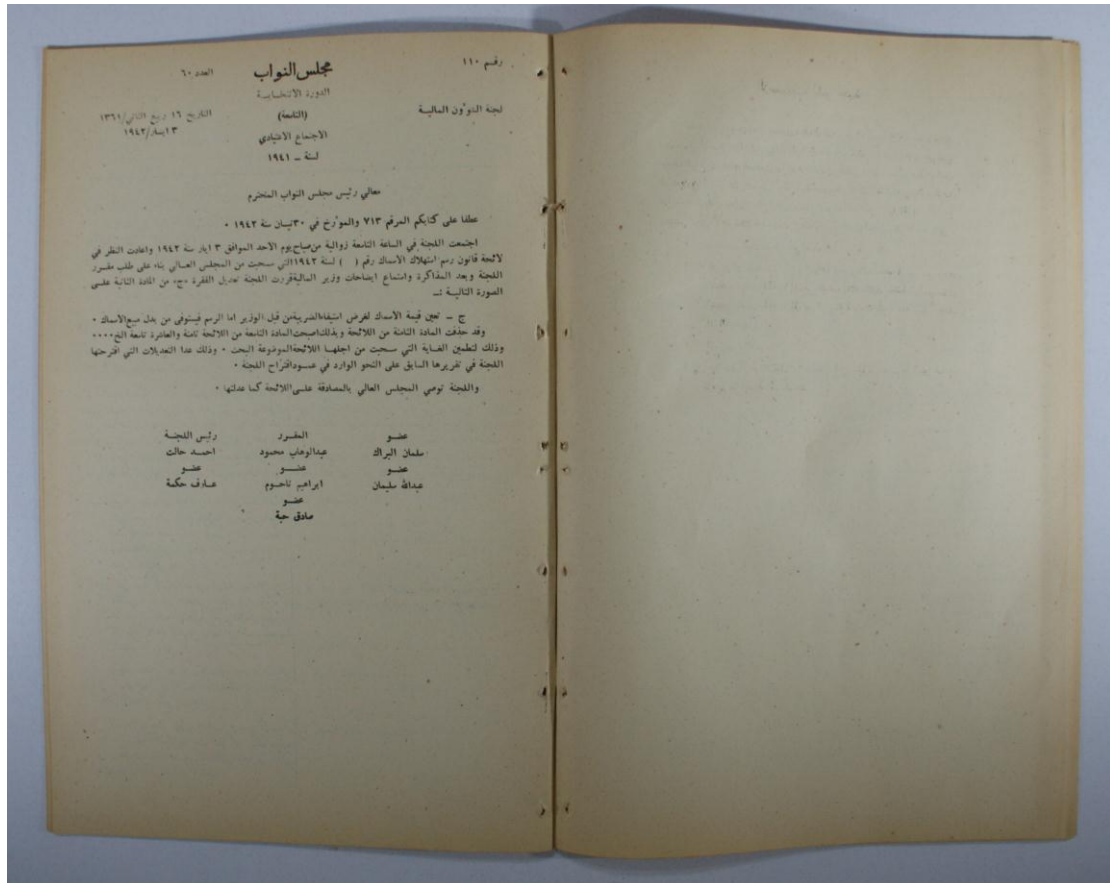 رقم ١١٠
مجلس النواب
العدد ٦٠
الدورة الانتخابية
لجنة الشؤون المالية
(التاسعة)
التاريخ ١٦ ربيع الثاني/١٣٦١
٣ ايار/١٩٤٢
الاجتماع الاعتيادي
لسنة ـ ١٩٤١
معالي رئيس مجلس النواب المحترم
عطفا على كتابكم المرقم ٧١٣ والمؤرخ في ٣٠نيسان سنة ١٩٤٢ ٠
اجتمعت اللجنة في الساعة التاسعة زوالية من صباح يوم الاحد الموافق ٣ ايار سنة ١٩٤٢ واعادت النظر في
لائحة قانون رسم استهلاك الاسماك رقم ( ) لسنة ١٩٤٢ التي سحبت من المجلس العالي بناء على طلب مقرر
اللجنة وبعد المذاكرة واستماع ايضاحات وزير المالية قررت اللجنة تعديل الفقرة «ج» من المادة الثانية على
الصورة التالية :ـ
ج ـ تعين قيمة الاسماك لغرض استيفاء الضريبة من قبل الوزير اما الرسم فيستوفى من بدل مبيع الاسماك ٠
وقد حذفت المادة الثامنة من اللائحة وبذلك اصبحت المادة التاسعة من اللائحة ثامنة والعاشرة تاسعة الخ ٠٠٠٠
وذلك لتطمين الغاية التي سحبت من اجلها اللائحة الموضوعة البحث ٠ وذلك عدا التعديلات التي اقترحتها
اللجنة في تقريرها السابق على النحو الوارد في عمود اقتراح اللجنة ٠
واللجنة توصي المجلس العالي بالمصادقة على اللائحة كما عدلتها ٠
عضو المقرر رئيس اللجنة
سلمان البراك عبدالوهاب محمود احمد حالت
عضو عضو عضو
عبدالله سليمان ابراهيم ناحوم عارف حكمة
عضو
صادق حبة